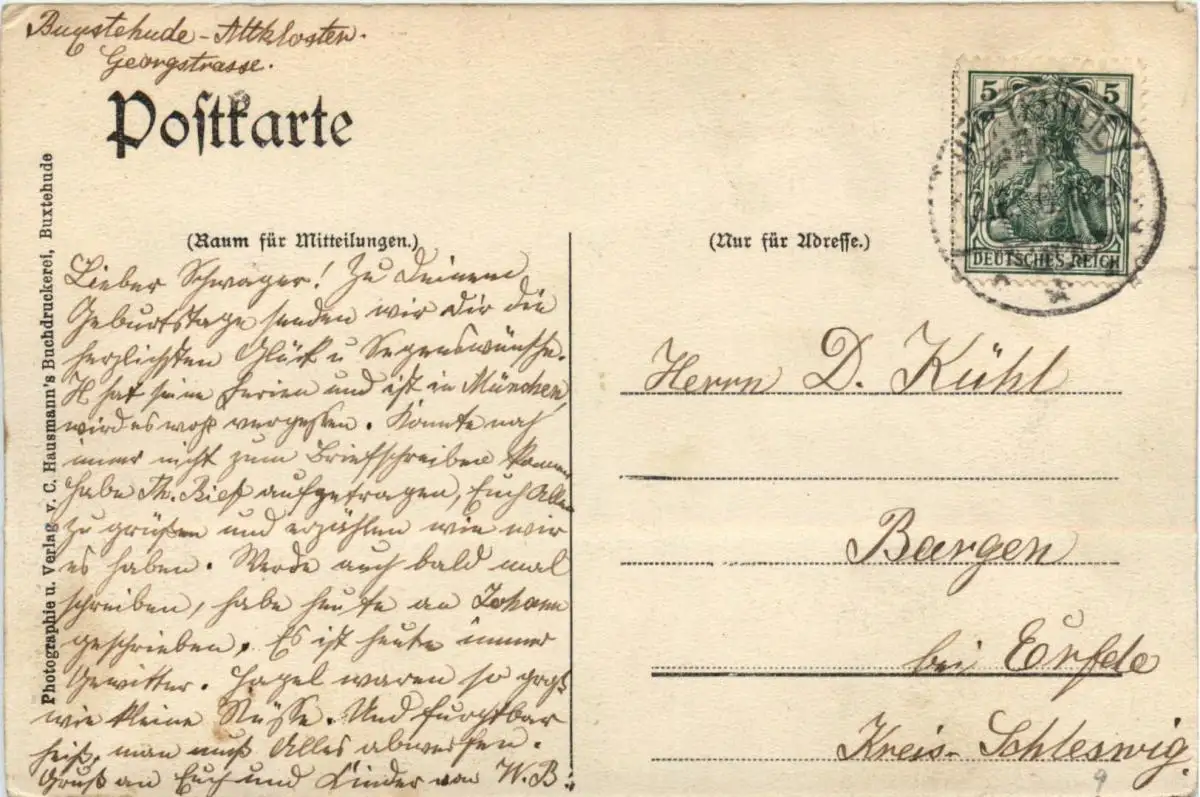 Buxtehude-Altkloster.
Georgstrasse.
Postkarte
(Raum für Mitteilungen.)
(Nur für Adresse.)
Photographie u. Verlag v. C. Hausmann's Buchdruckerei, Buxtehude
5 5
DEUTSCHES REICH
Lieber Schwager! Zu Deinem
Geburtstage senden wir Dir die
herzlichsten Glück u Segenswünsche.
H hat seine Ferien und ist in München,
wird es wohl vergessen. Konnte noch
immer nicht zum Briefschreiben kommen
habe Th. aufgetragen, Euch Allen
zu grüßen und erzählen wie wir
es haben. Werde auch bald mal
schreiben, habe heute an Johann
geschrieben. Es ist heute immer
Gewitter. Hagel waren so groß
wie kleine Nüsse. Und furchtbar
heiß, man muß Alles abwerfen.
Gruß an Euch und Kinder von W. B.
Herrn D. Kühl
Bargen
bei Erfde
Kreis-Schleswig.
9